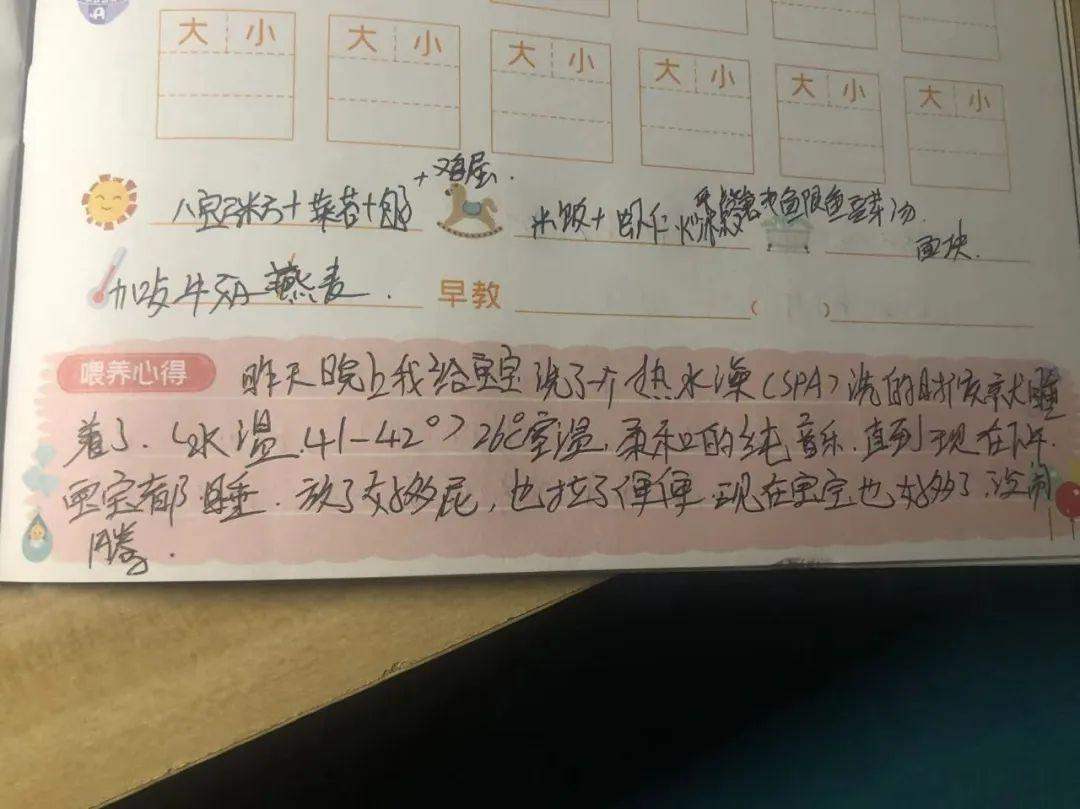 大 小 大 小 大 小 大 小 大 小 大 小
八宝粥+菜苔+
米饭+虾仁
面块.
加点牛奶燕麦.
早教 ( )
喂养心得 昨天晚上我给宝宝洗了个热水澡(SPA)洗的时候就睡
着了.(水温.41-42°)26℃室温,柔和的纯音乐.直到现在下午.
宝宝都睡.放了好多屁,也拉了便便.现在宝宝也好多了,没闹
腾.